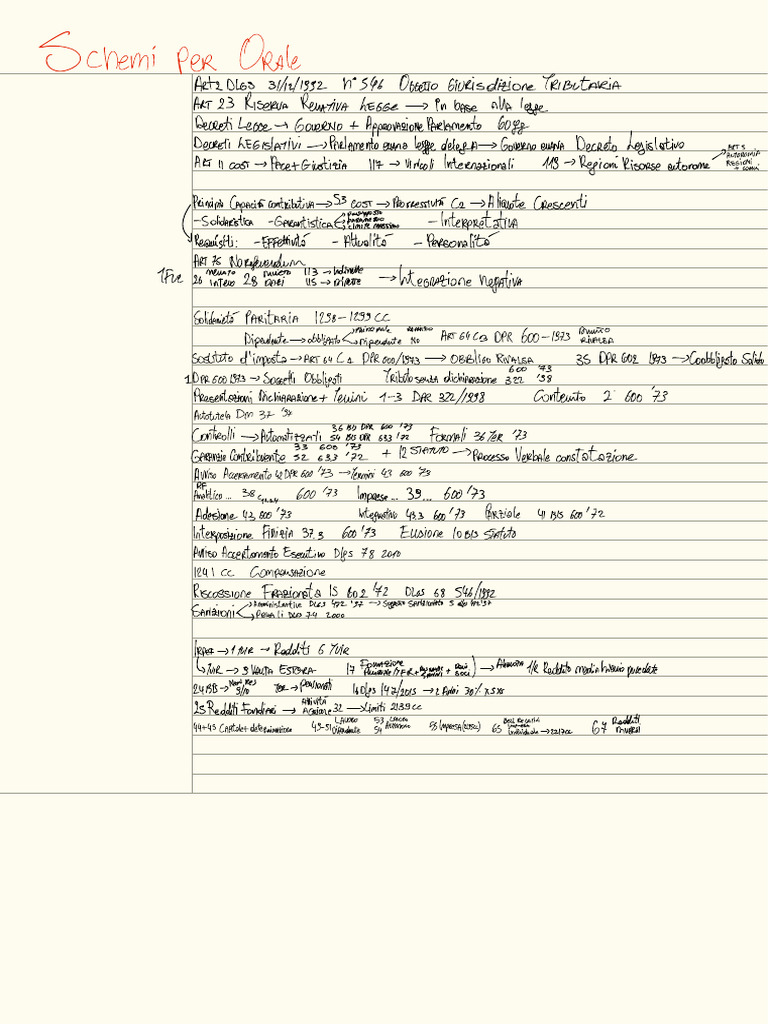 Schemi per Orale
Art 2 DLgs 31/12/1992 n° 546 Oggetto Giurisdizione Tributaria
Art 23 Riserva Relativa Legge → In base alla legge
Decreti Legge → Governo + Approvazione Parlamento 60gg
Decreti Legislativi → Parlamento emana legge delega → Governo emana Decreto Legislativo
Art 11 Cost → Pace + Giustizia 117 → Vincoli Internazionali 119 → Regioni Risorse autonome → Art 5 Autonomia Regioni + Comuni
Principio Capacità Contributiva → 53 Cost → Progressività C2 → Aliquote Crescenti
- Solidaristica - Garantistica - Interpretativa
Requisiti: - Effettività - Attualità - Personalità
Art 75 No Referendum
1 TUR 26 28 113 → Indirette 115 → Dirette → Integrazione Negativa
Solidarietà Paritaria 1298 - 1299 CC
Dipendente → obbligato Principale Dipendente No Art 64 C3 DPR 600 - 1973 Rivalsa
Sostituto d'imposta → Art 64 C1 DPR 600/1973 → Obbligo Rivalsa 35 DPR 602 1973 → Coobbligato Solido
1 DPR 600 1973 → Soggetti Obbligati Tributo senza dichiarazione 600 '73 322 '98
Presentazioni Dichiarazione + Termini 1-3 DPR 322/1998 Contenuto 2 600 '73
Autotutela DM 37 '97
Controlli → Automatizzati 36 Bis DPR 600 '73 54 Bis DPR 633 '72 Formali 36 Ter '73
Garanzie Contribuente 33 600 '73 52 633 '72 + 12 Statuto → Processo Verbale constatazione
Avviso Accertamento 42 DPR 600 '73 → Termini 43 600 '73
PF Analitico... 38 600 '73 Imprese... 39... 600 '73
Adesione 43 600 '73 Integrativo 43.3 600 '73 Parziale 41 Bis 600 '72
Interposizione Fittizia 37.3 600 '73 Elusione 10 Bis Statuto
Avviso Accertamento Esecutivo DLgs 78 2010
1241 CC Compensazione
Riscossione Frazionata 15 602 '72 DLgs 68 546/1992
Sanzioni Amministrative DLgs 472 '97 → Soggetto Sanzionato 5 472 '97 Penali DLgs 74 2000
Irpef → 1 TUIR → Redditi 6 TUIR
TUIR → 3 Volta Estera 17 → Aliquota 1/2 Reddito medio biennio precedente
24 Bis → 24 Ter → Pensionati 16 DLgs 147/2015 → 2 Anni
25 Redditi Fondiari → Attività Agricole 32 → Limiti 2135 CC
44+45 Capitale + determinazione 49-51 Lavoro Dipendente 53 Lavoro Autonomo 54 55 Impresa (2195cc) 65 Individuale → 2217cc 67 Redditi Diversi